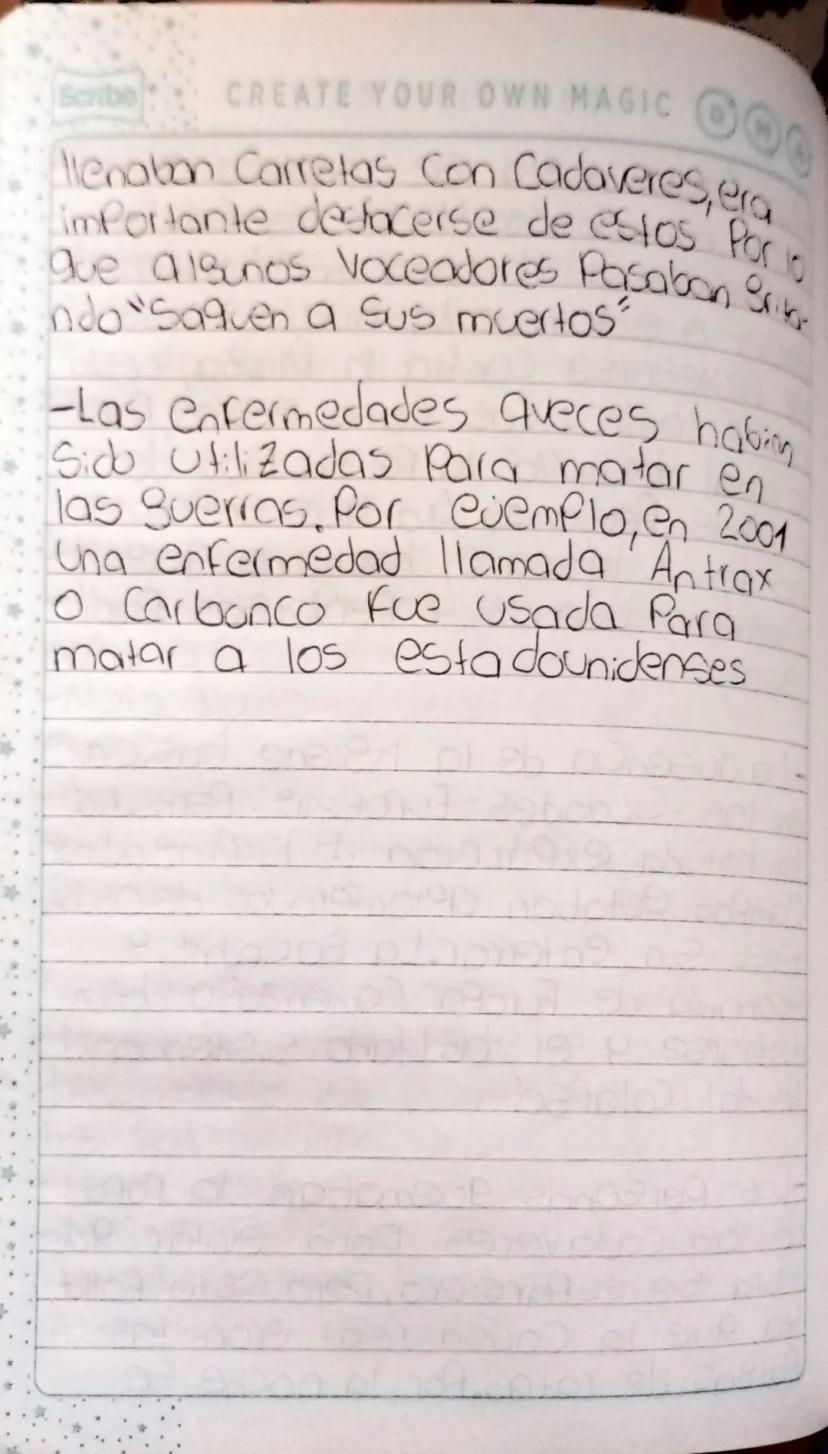 Scribe CREATE YOUR OWN MAGIC D M A
llenaban Carretas Con Cadaveres, era
importante deshacerse de estos Por lo
que algunos Voceadores Pasaban Grita-
ndo "Saquen a Sus muertos"
-Las enfermedades aveces habian
Sido Utilizadas Para matar en
las guerras. Por ejemplo, en 2001
Una enfermedad llamada Antrax
O Carbunco Fue Usada Para
matar a los estadounidenses